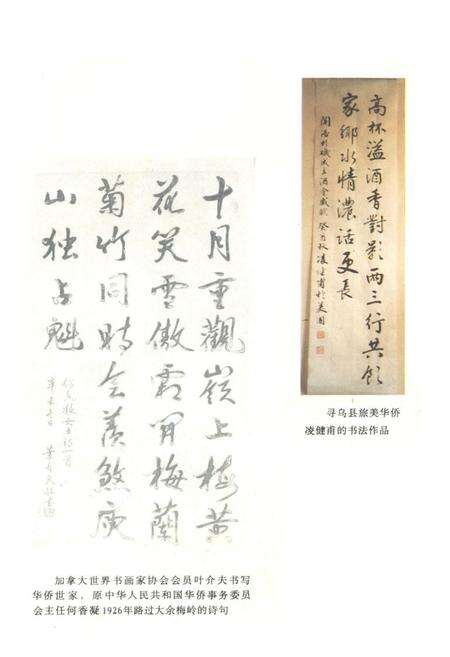 十月重觀嶺上梅黄
花笑雪傲霜开梅蘭
菊竹同时会羡煞庾
山独占魁
高杯溢酒香對影兩三行共飲
家鄉水情濃話更長
癸酉秋凌健甫於美国
寻乌县旅美华侨
凌健甫的书法作品
加拿大世界书画家协会会员叶介夫书写
华侨世家，原中华人民共和国华侨事务委员
会主任何香凝1926年路过大余梅岭的诗句